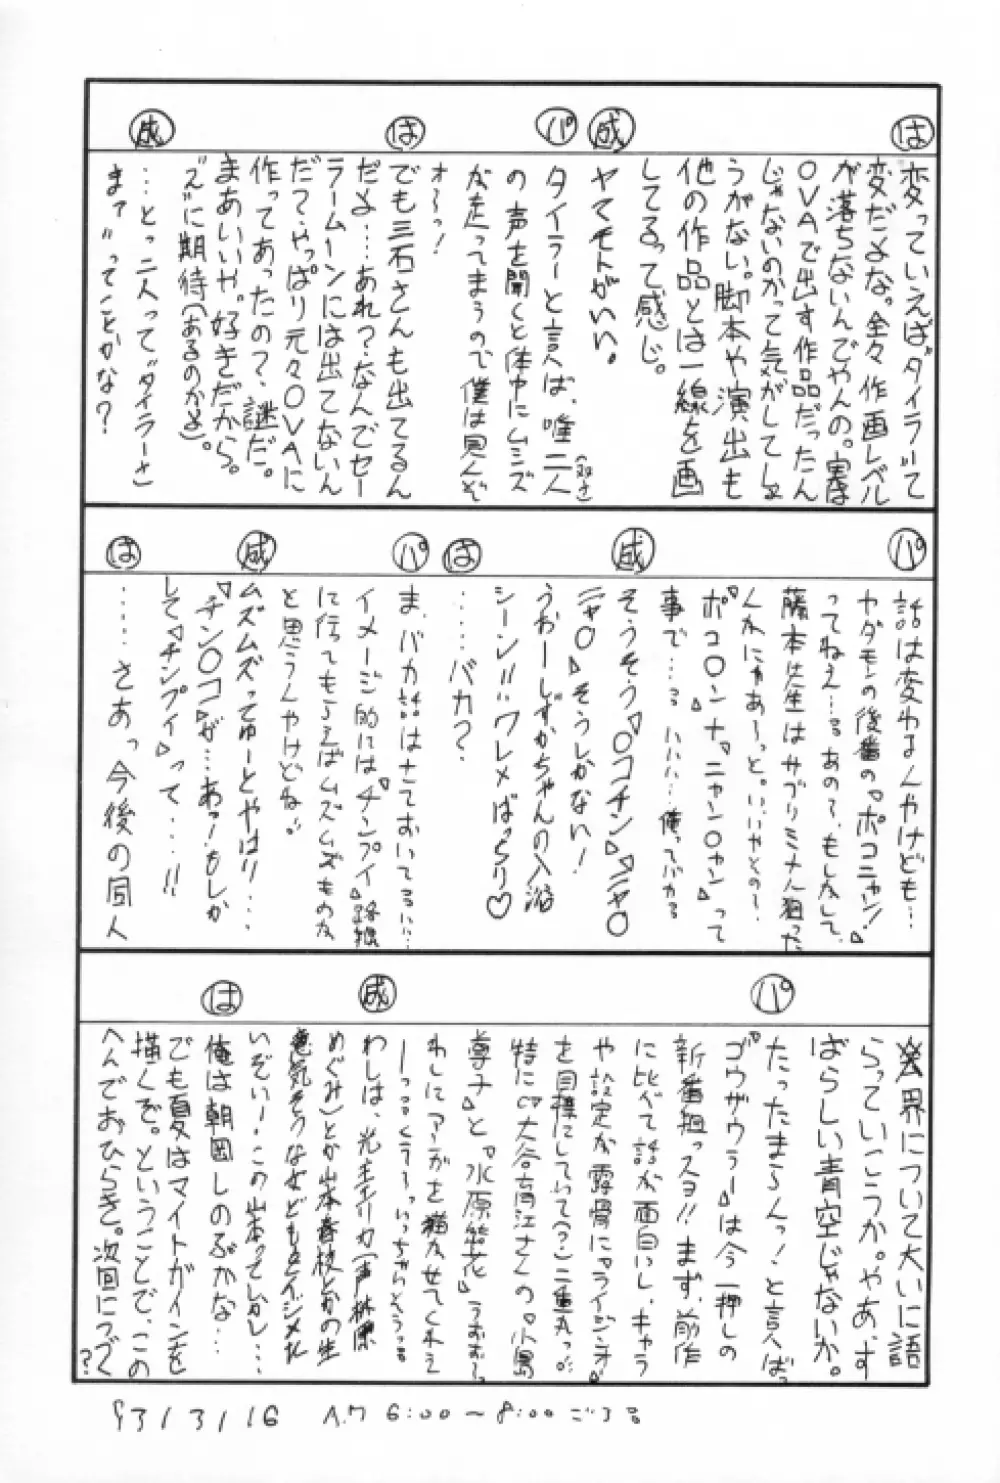 は
変っていえば〝タイラー〟て
変だよな。全々作画レベル
が落ちないんでやんの。実は
OVAで出す作品だったん
じゃないのかって気がしてしょ
うがない。脚本や演出も
他の作品とは一線を画
してるって感じ。
成
ヤマモトがいい。
パ
タイラーと言えば、唯二人
の声を聞くと体中にムシズ
が走ってしまうので僕は見んぞ
オーっ!
は
でも三石さんも出てるん
だよ…あれ?なんでセー
ラームーンには出てないん
だ?やっぱり元々OVAに
作ってあったの?謎だ。
まあいいや。好きだから。
〝ズ〟に期待(あるのかよ)。
成
…とっ二人って〝ダイラーさ
まァ〟ってことかな?
パ
話は変わるんやけども…
ヤダモンの後番の『ポコニャン!』
ってねえ…。あの?、もしかして、
藤本先生はサブリミナル狙った
んかにゃあ~っと。いいやその?、
『ポコ○ン』ナ『ニャン○ャン』って
事で…。ハハハ…俺ってバカ
成
そうそう『○コチン』『ニャ○
ニャ○』そうしかない!
うおーしずかちゃんの入浴
シーン!!ワレメばっちり♡
は
……バカ?
パ
ま、バカ話はさておいて
イメージ的には『チンプイ』路線
に行ってもらえばムズムズものだ
と思うんやけどね
成
ムズムズってゆーとやはり…
『チン○コ』が…あっ!もしか
して『チンプイ』って…!!
は
……さあっ今後の同人
界について大いに語
らっていこうか。やあ、す
ばらしい青空じゃないか。
パ
たったたまら〜んっ!と言えばっ
『ゴウザウラー』は今一押しの
新番組っスヨ!!まず、前作
に比べて話が面白いし、キャラ
や設定が露骨に〝ライジンオー〟
を目標にしていて(?)二重丸っ
特に♡大谷育江さんの『小島
尊子』と『水原笑花』うおお〜っ
わしにマンガを描かせてくれえ
成
わしは、光主エリカ(声 林原
めぐみ)とか山本春枝とかの生
意気そうな女どもをイジメた
いぞい!この山本ってしかし…
は
俺は朝岡しのぶかな…
でも夏はマイトガインを
描くぞ。ということで、この
へんでおひらき。次回につづく
?
93/3/16 A.M 6:00〜8:00ごろ